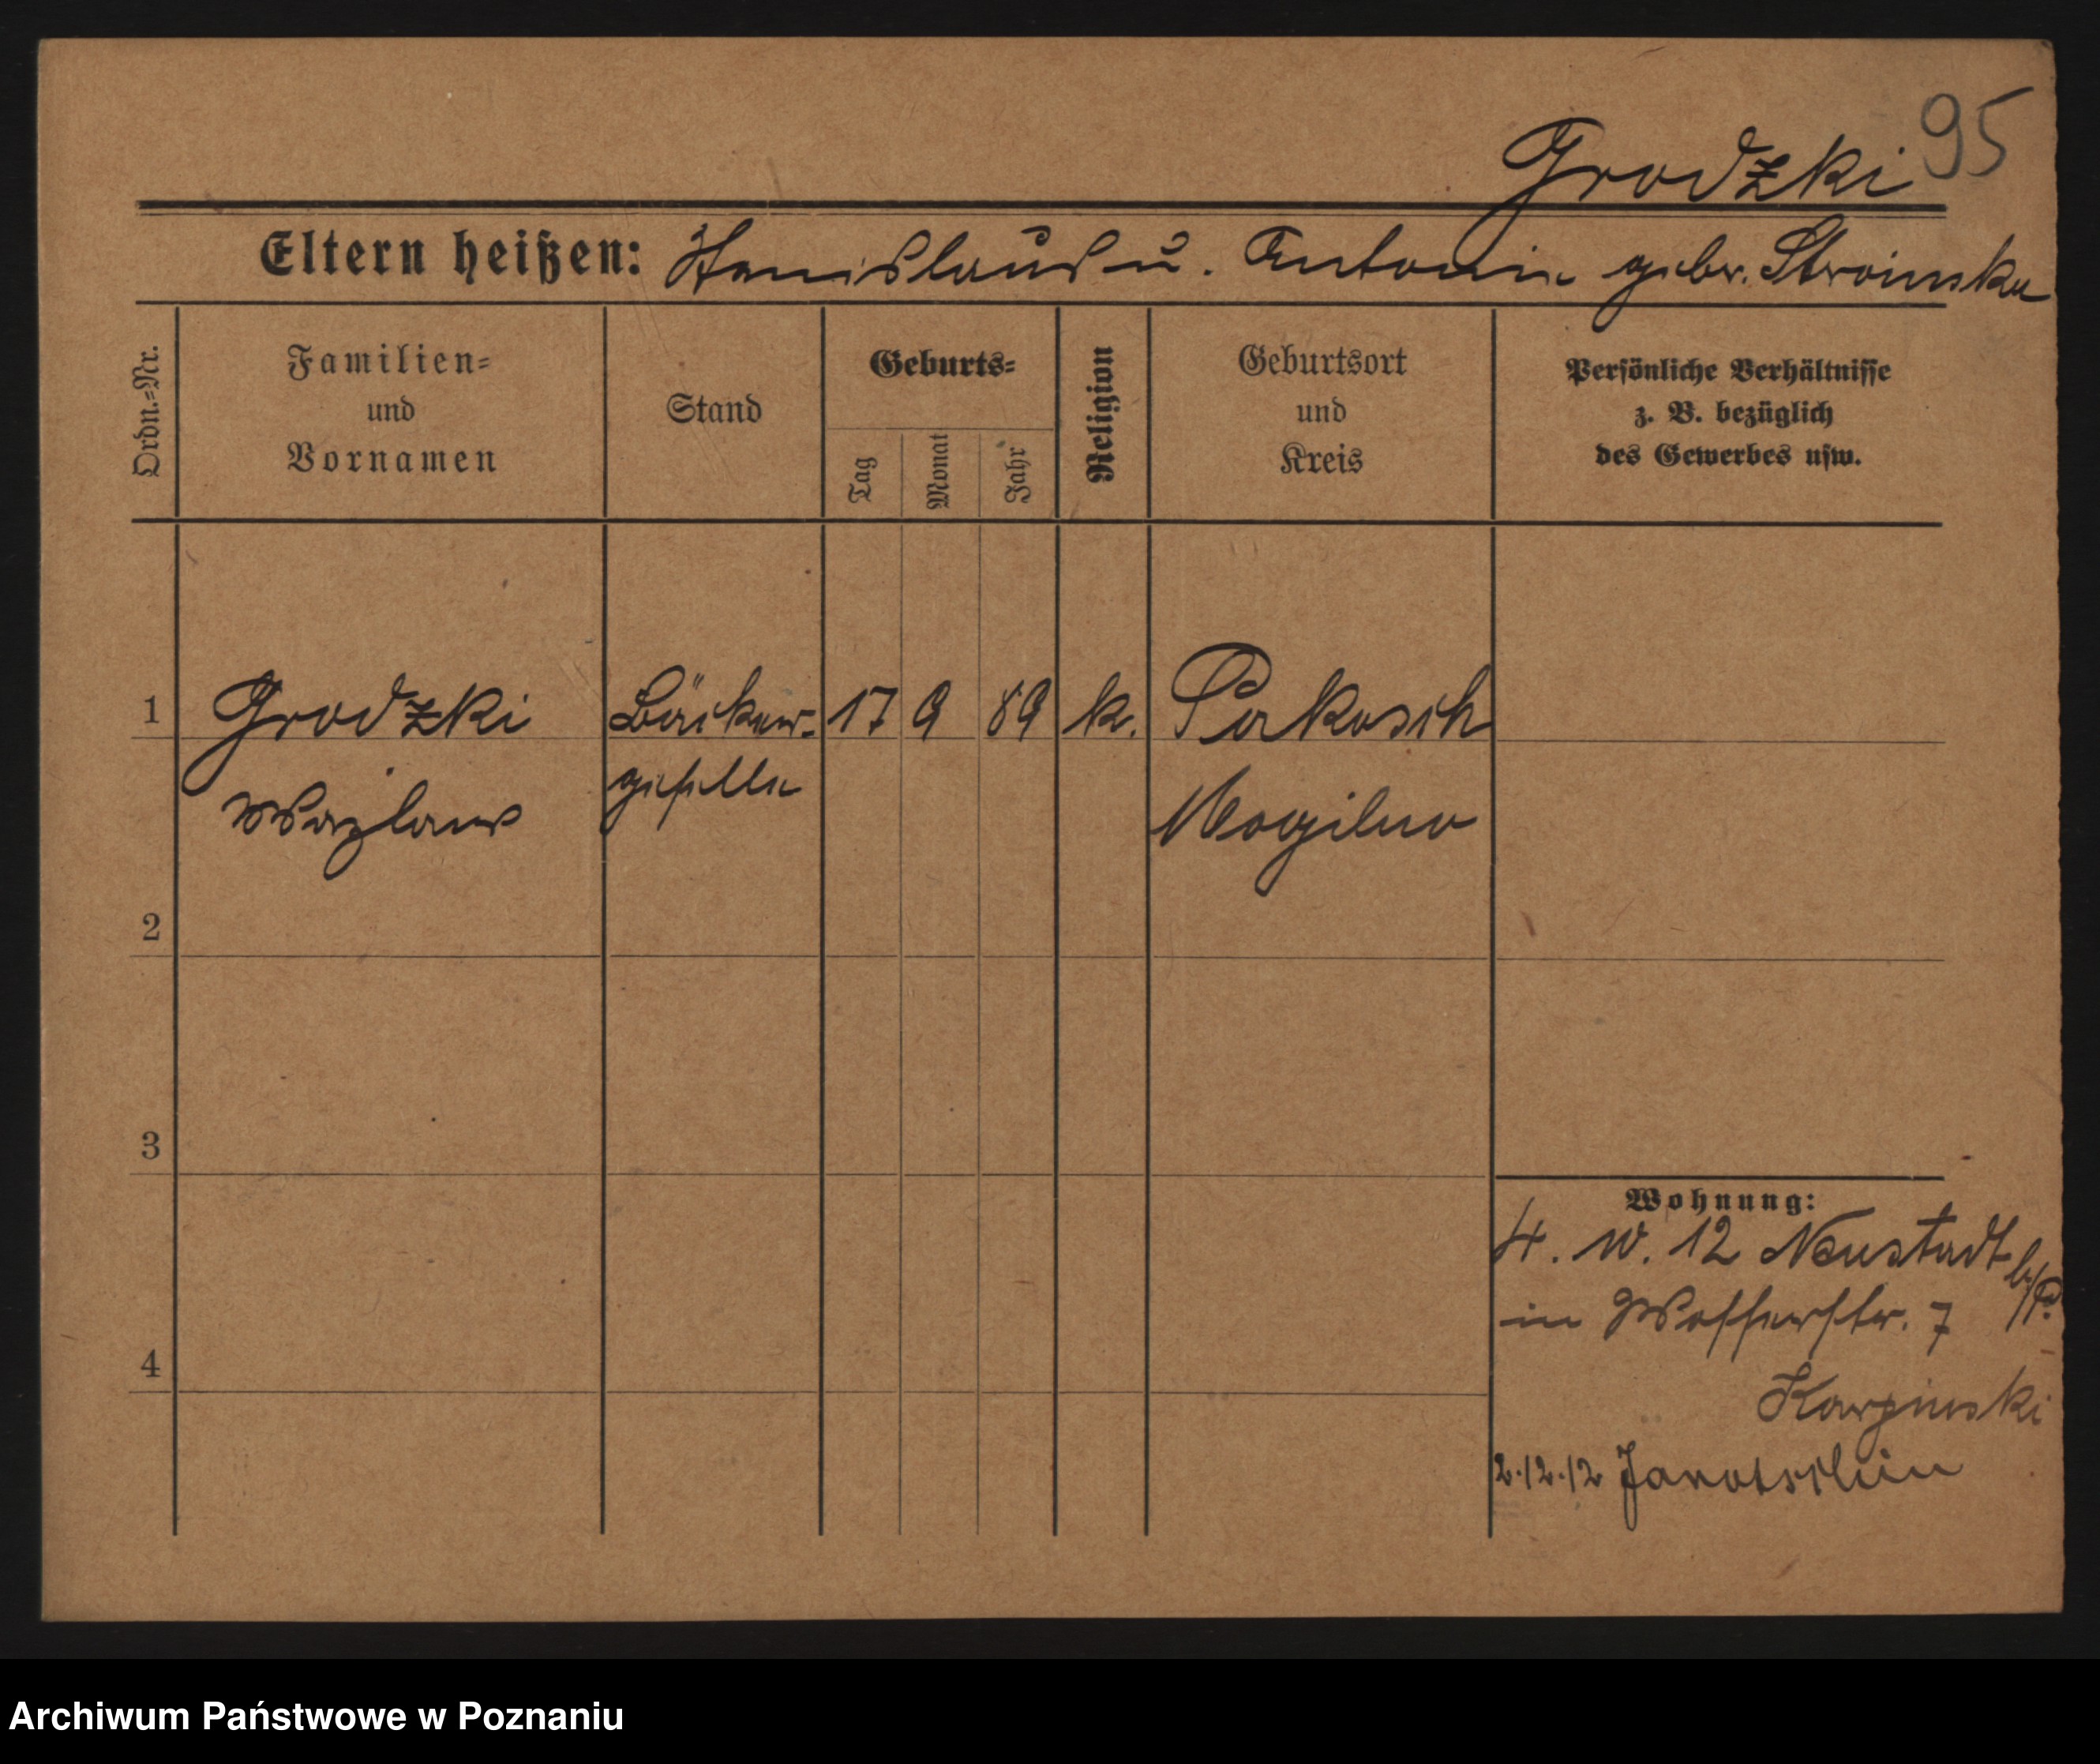 95
Grodzki
Eltern heißen: Stanislaus u. Antonie gebr. Stroinska
Ordn.=Nr.
Familien=
und
Vornamen
Stand
Geburts=
Tag
Monat
Jahr
Religion
Geburtsort
und
Kreis
Persönliche Verhältnisse
z. B. bezüglich
des Gewerbes usw.
1 Grodzki Bäcker- 17 9 89 k. Parkosch
Wazlaus geselle Mogilno
2
3
Wohnung:
4. IV. 12 Neustadt b/P.
in Wasserstr. 7
4
Karpinski
2.12.12
Archiwum Państwowe w Poznaniu